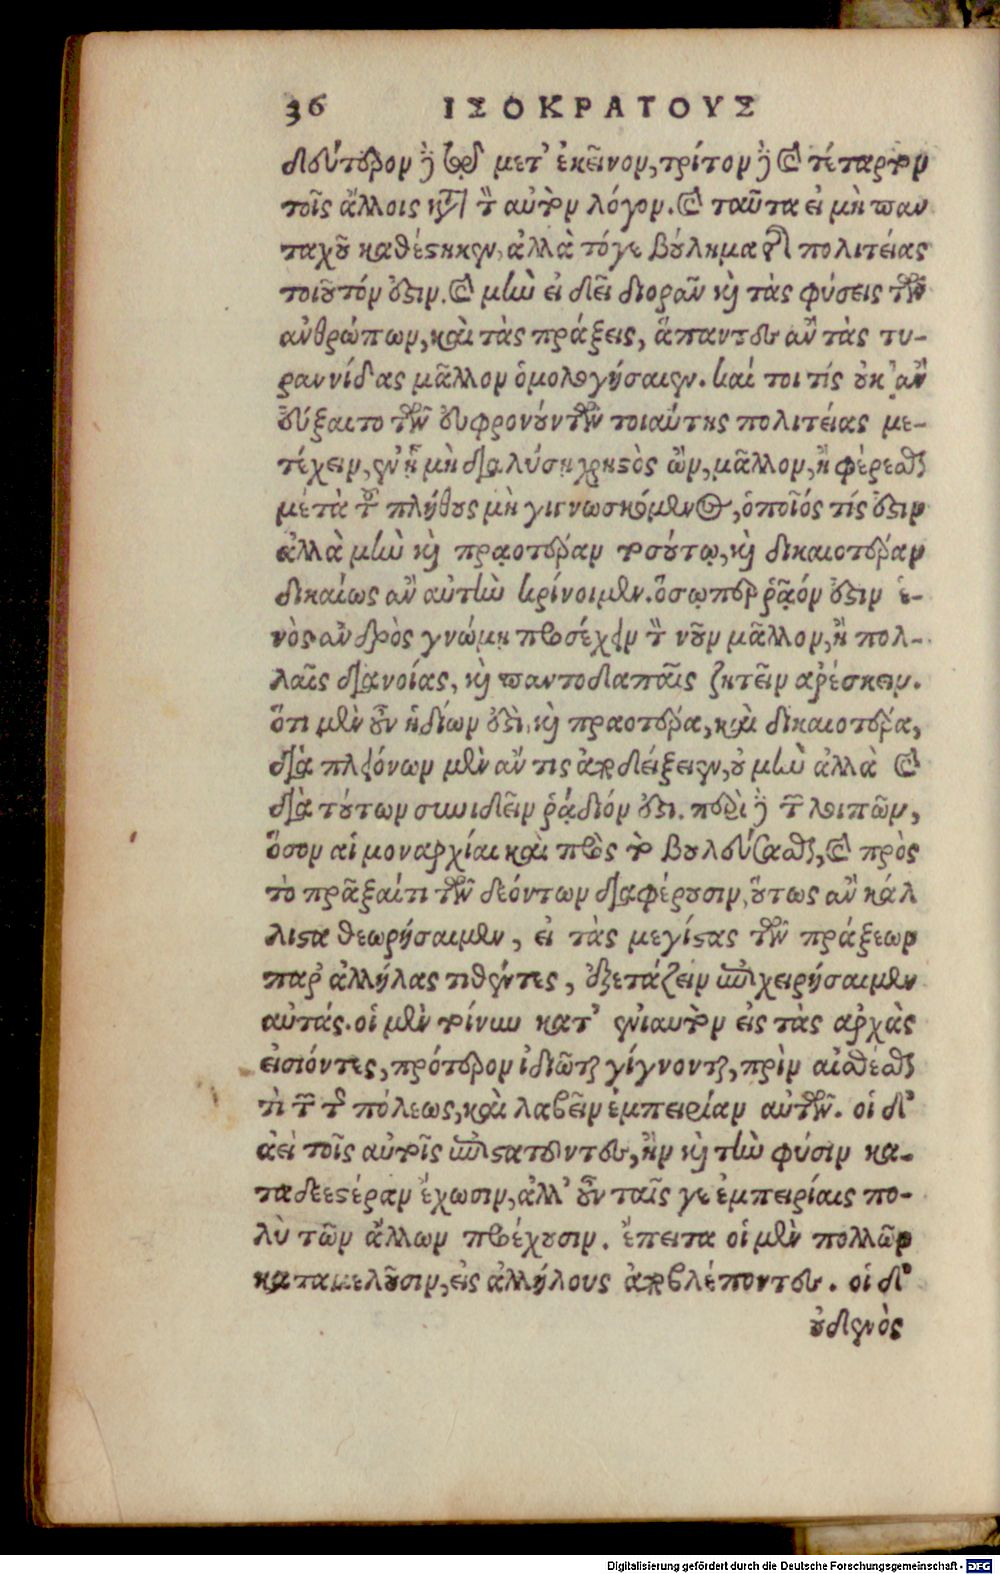 36 ΙΣΟΚΡΑΤΟΥΣ
δεύτερον δὲ τῷ μετ' ἐκεῖνον, τρίτον δὲ καὶ τέταρτον
τοῖς ἄλλοις κατὰ τὸν αὐτὸν λόγον. καὶ ταῦτα εἰ μὴ παν
ταχοῦ καθέστηκεν, ἀλλὰ τόγε βούλημα τῆς πολιτείας
τοιοῦτόν ἐστιν. καὶ μὴν εἰ δεῖ διορᾶν καὶ τὰς φύσεις τῶν
ἀνθρώπων, καὶ τὰς πράξεις, ἅπαντες ἂν τὰς τυ-
ραννίδας μᾶλλον ὁμολογήσαιεν. καί τοι τίς οὐκ ἂν
εὔξαιτο τῶν εὐφρονούντων τοιαύτης πολιτείας με-
τέχειν, ἐν ᾗ μὴ διαλύσῃ χρηστὸς ὢν, μᾶλλον, ἢ φέρεσθαι
μετὰ τοῦ πλήθους μὴ γιγνωσκόμενος, ὁποῖός τίς ἐστιν
ἀλλὰ μὴν καὶ πραοτέραν τοσούτῳ, καὶ δικαιοτέραν
δικαίως ἂν αὐτὴν κρίνοιμεν. ὅσῳπερ ῥᾷόν ἐστιν ἑ-
νὸς ἀνδρὸς γνώμῃ προσέχειν τὸν νοῦν μᾶλλον, ἢ πολ-
λαῖς διανοίας, καὶ παντοδαπαῖς ζητεῖν ἀρέσκειν.
ὅτι μὲν οὖν ἡδίων ἐστὶ, καὶ πραοτέρα, καὶ δικαιοτέρα,
διὰ πλειόνων μὲν ἄν τις ἀποδείξειεν, οὐ μὴν ἀλλὰ καὶ
διὰ τούτων συνιδεῖν ῥᾴδιόν ἐστι. περὶ δὲ τῶν λοιπῶν,
ὅσον αἱ μοναρχίαι καὶ πρὸς τὸ βουλεύσασθαι, καὶ πρὸς
τὸ πρᾶξαί τι τῶν δεόντων διαφέρουσιν, οὕτως ἂν κάλ
λιστα θεωρήσαιμεν, εἰ τὰς μεγίστας τῶν πράξεων
παρ' ἀλλήλας τιθέντες, ἐξετάζειν ἐπιχειρήσαιμεν
αὐτάς. οἱ μὲν τοίνυν κατ' ἐνιαυτὸν εἰς τὰς ἀρχὰς
εἰσιόντες, πρότερον ἰδιῶται γίγνονται, πρὶν αἰσθέσθαι
τὶ τῶν τῆς πόλεως, καὶ λαβεῖν ἐμπειρίαν αὐτῶν. οἱ δ'
ἀεὶ τοῖς αὐτοῖς ἐπιστατοῦντες, ἢν καὶ τὴν φύσιν κα-
ταδεεστέραν ἔχωσιν, ἀλλ' οὖν ταῖς γε ἐμπειρίαις πο-
λὺ τῶν ἄλλων προέχουσιν. ἔπειτα οἱ μὲν πολλῶν
καταμελοῦσιν, εἰς ἀλλήλους ἀποβλέποντες. οἱ δ'
οὐδενὸς
Digitalisierung gefördert durch die Deutsche Forschungsgemeinschaft - DFG